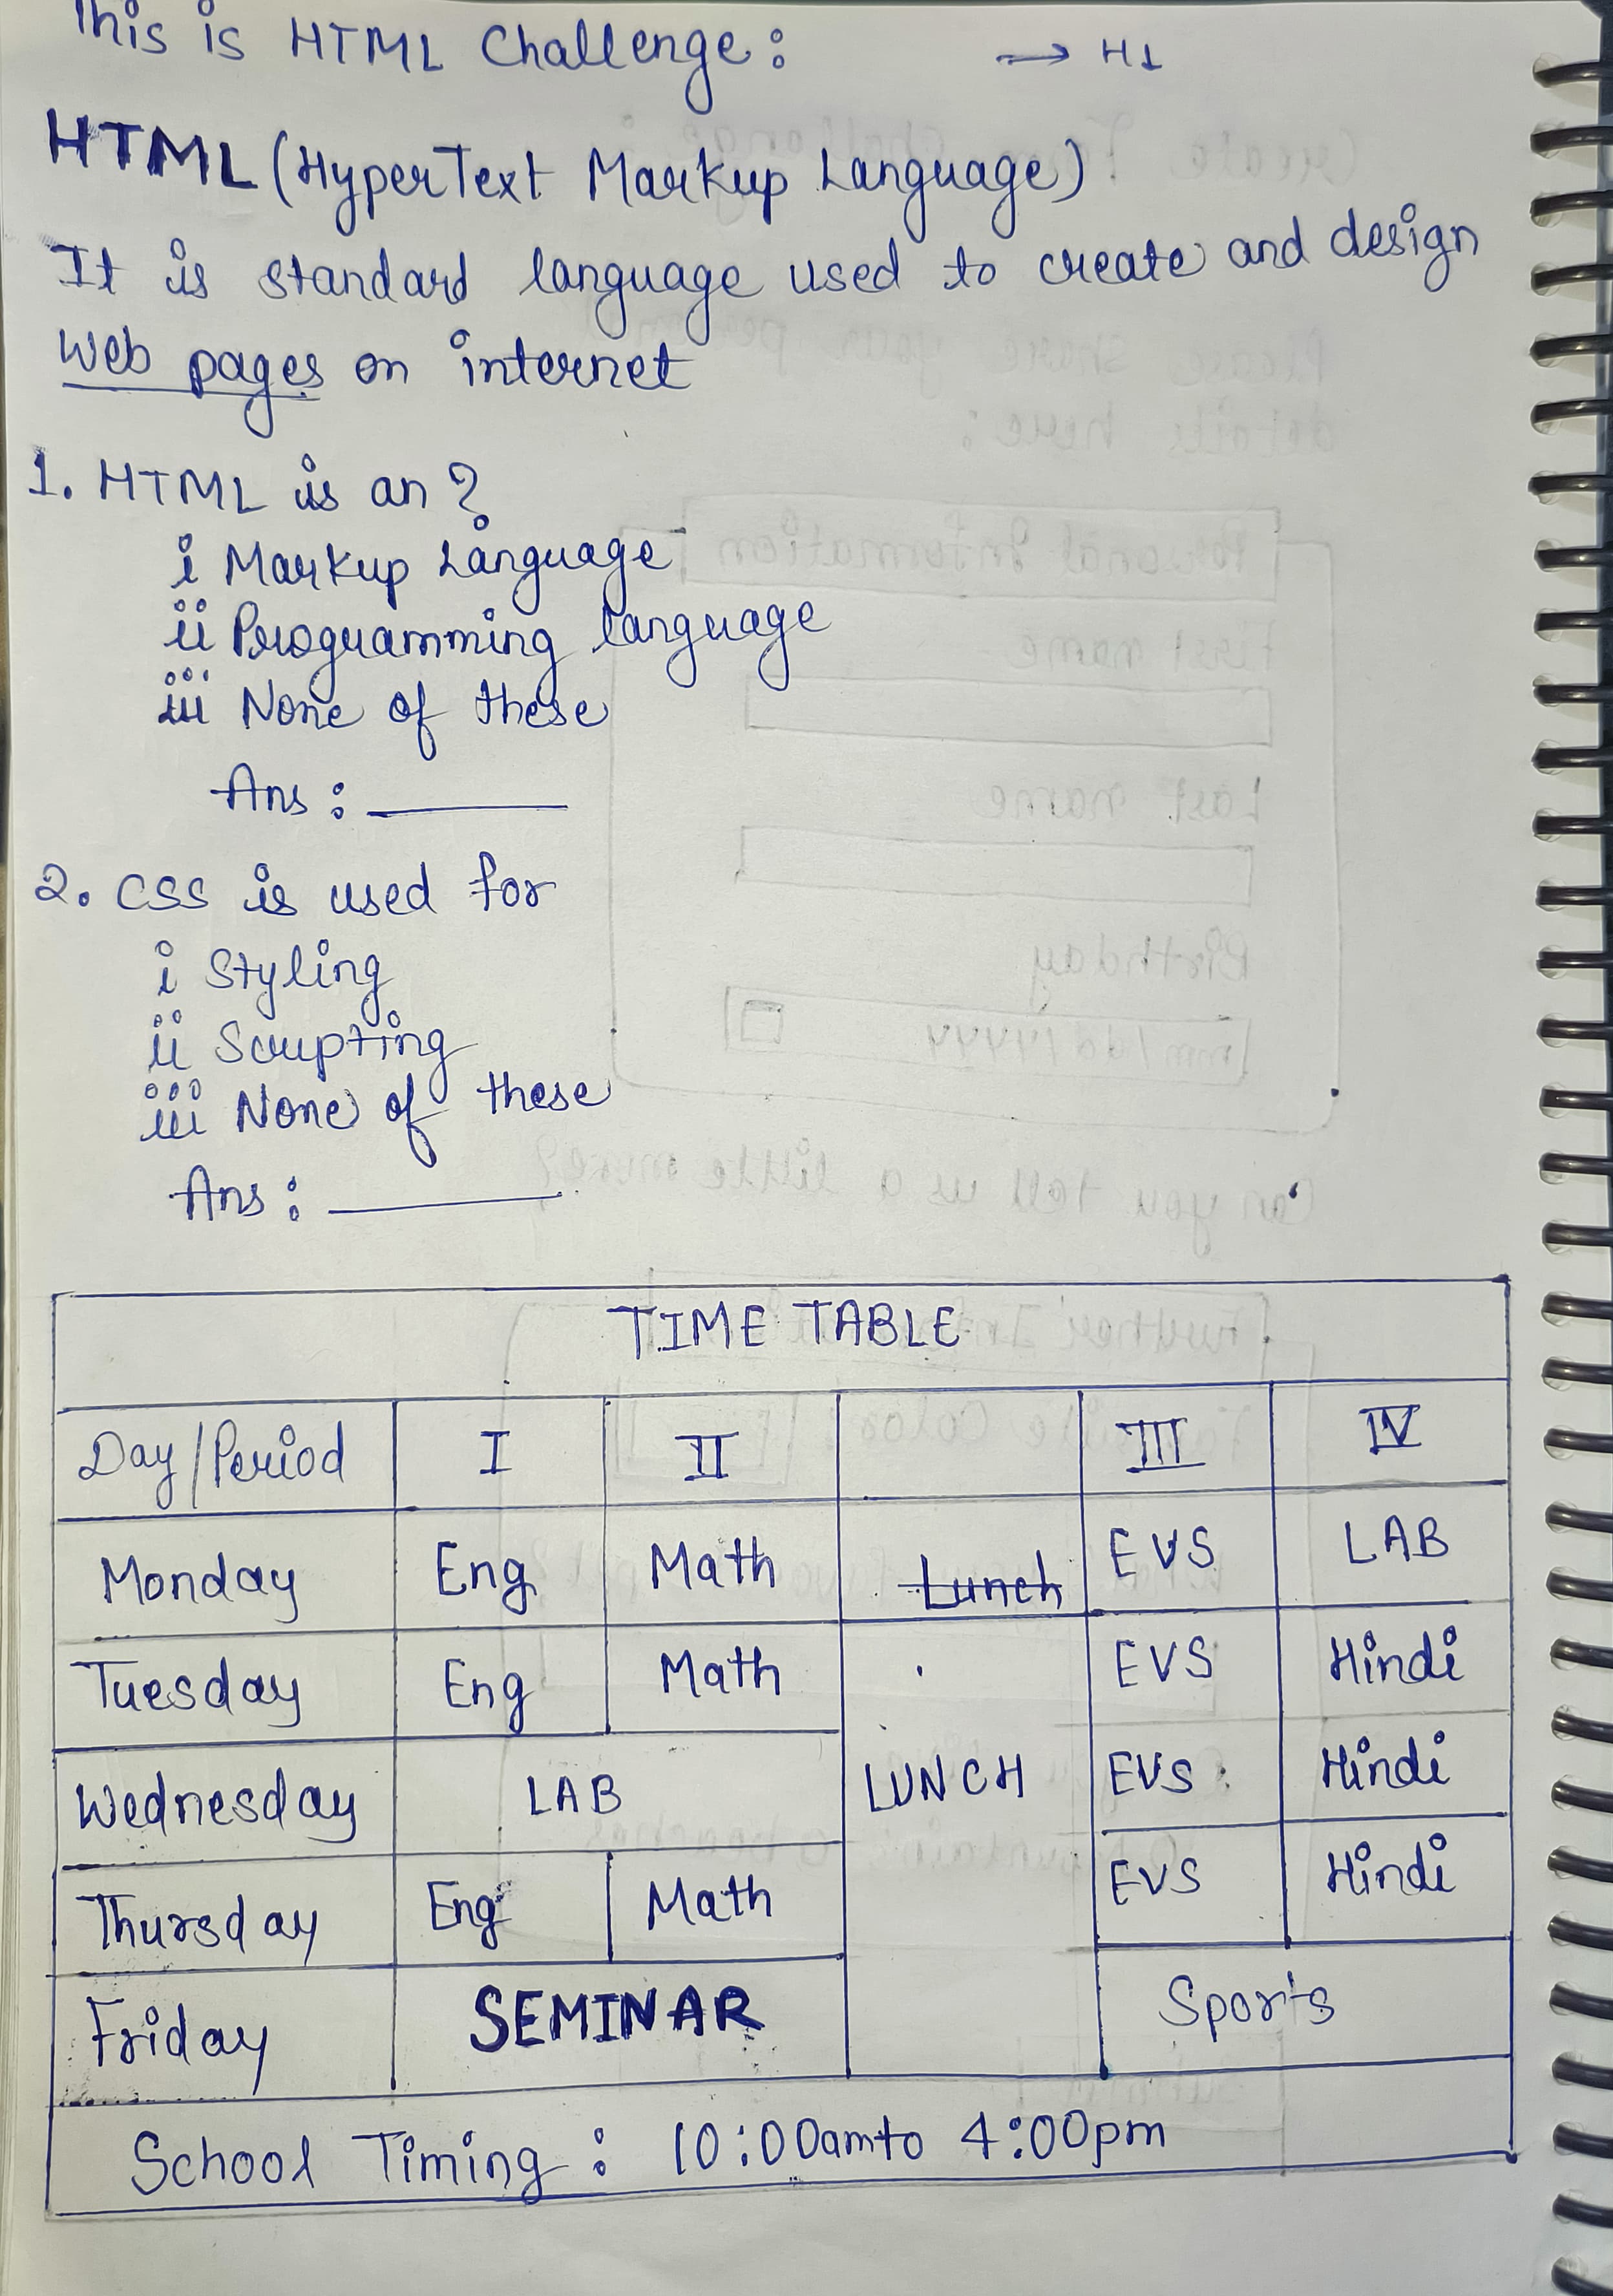 This is HTML Challenge: → H1
HTML (HyperText Markup Language)
It is standard language used to create and design
web pages on internet
1. HTML is an?
i Markup Language
ii Programming language
iii None of these
Ans: ______
2. CSS is used for
i Styling
ii Scripting
iii None of these
Ans: ______
TIME TABLE
Day/Period I II III IV
Monday Eng Math Lunch EVS LAB
Tuesday Eng Math EVS Hindi
Wednesday LAB LUNCH EVS Hindi
Thursday Eng Math EVS Hindi
Friday SEMINAR Sports
School Timing: 10:00am to 4:00pm